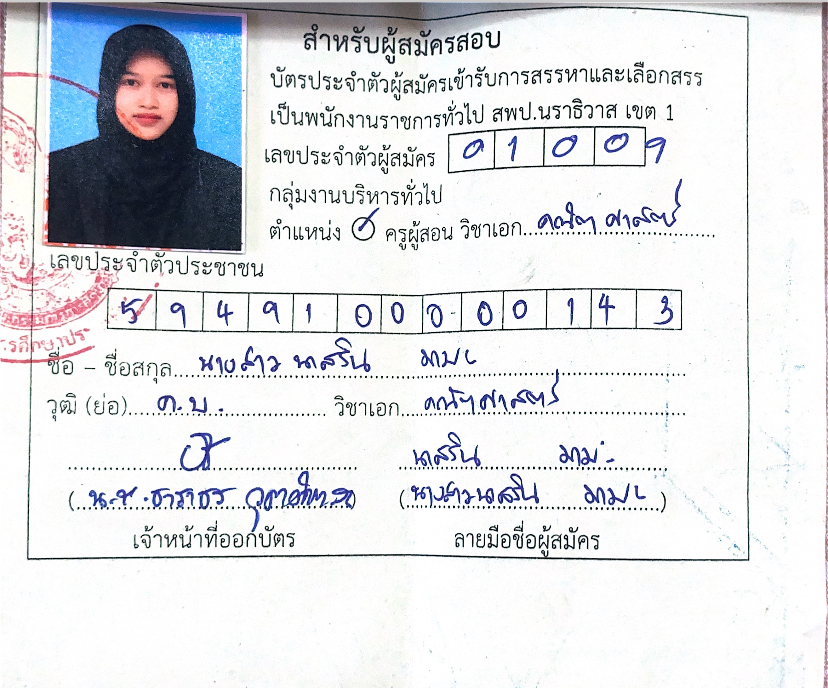 สำหรับผู้สมัครสอบ
บัตรประจำตัวผู้สมัครเข้ารับการสรรหาและเลือกสรร
เป็นพนักงานราชการทั่วไป สพป.นราธิวาส เขต 1
เลขประจำตัวผู้สมัคร 01009
กลุ่มงานบริหารทั่วไป
ตำแหน่ง ครูผู้สอน วิชาเอก คณิตศาสตร์
เลขประจำตัวประชาชน
5 9 4 9 1 0 0 0 0 0 1 4 3
ชื่อ – ชื่อสกุล นางสาว นาสริน มามะ
วุฒิ (ย่อ) ค.บ. วิชาเอก คณิตศาสตร์
นาสริน มามะ
(นางสาวนาสริน มามะ)
เจ้าหน้าที่ออกบัตร ลายมือชื่อผู้สมัคร